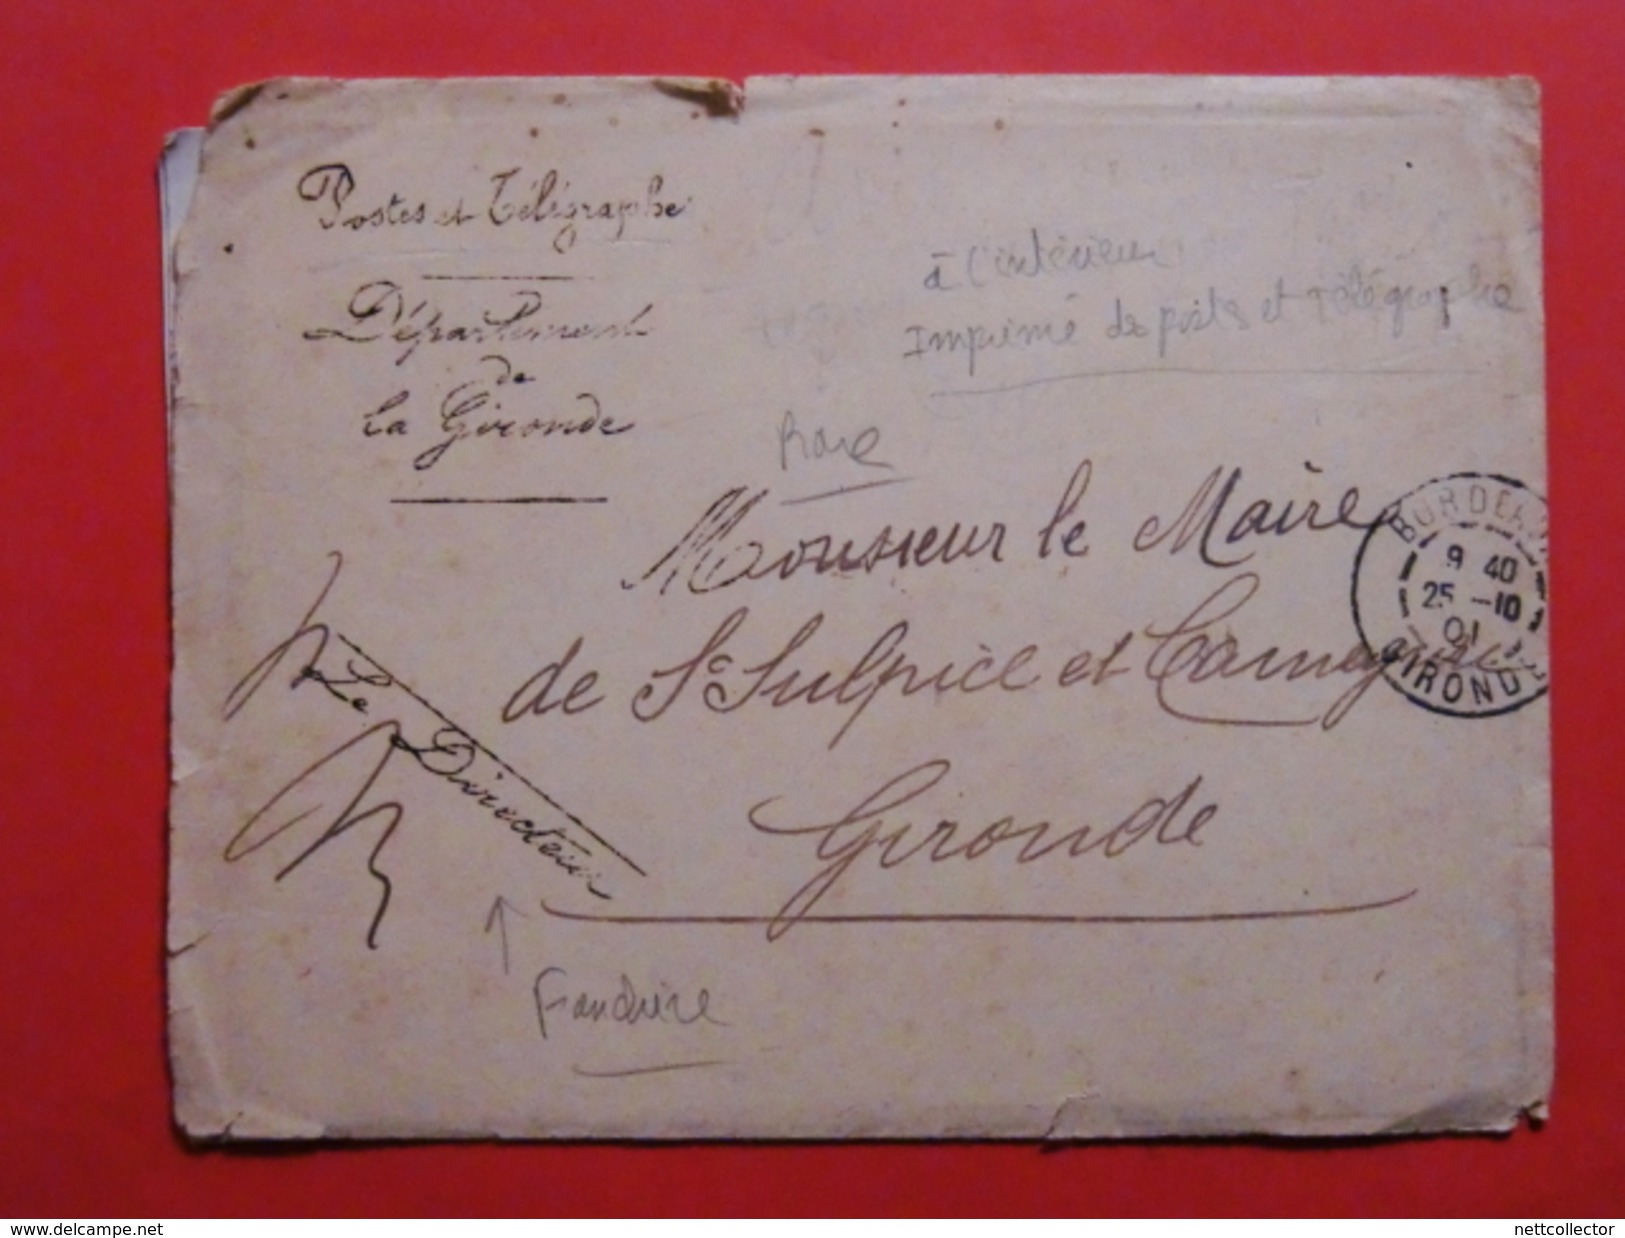 Postes et Télégraphe
Département
de
la Gironde
à l'intérieur
Imprimé de postes et Télégraphe
Rare
Monsieur le Maire
de St Sulpice et Cameyrac
Gironde
BORDEAUX
9 40
25 -10
01
GIRONDE
Le Directeur
Franchise
www.delcampe.net
nettcollector